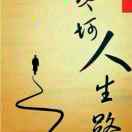 坷
人生路